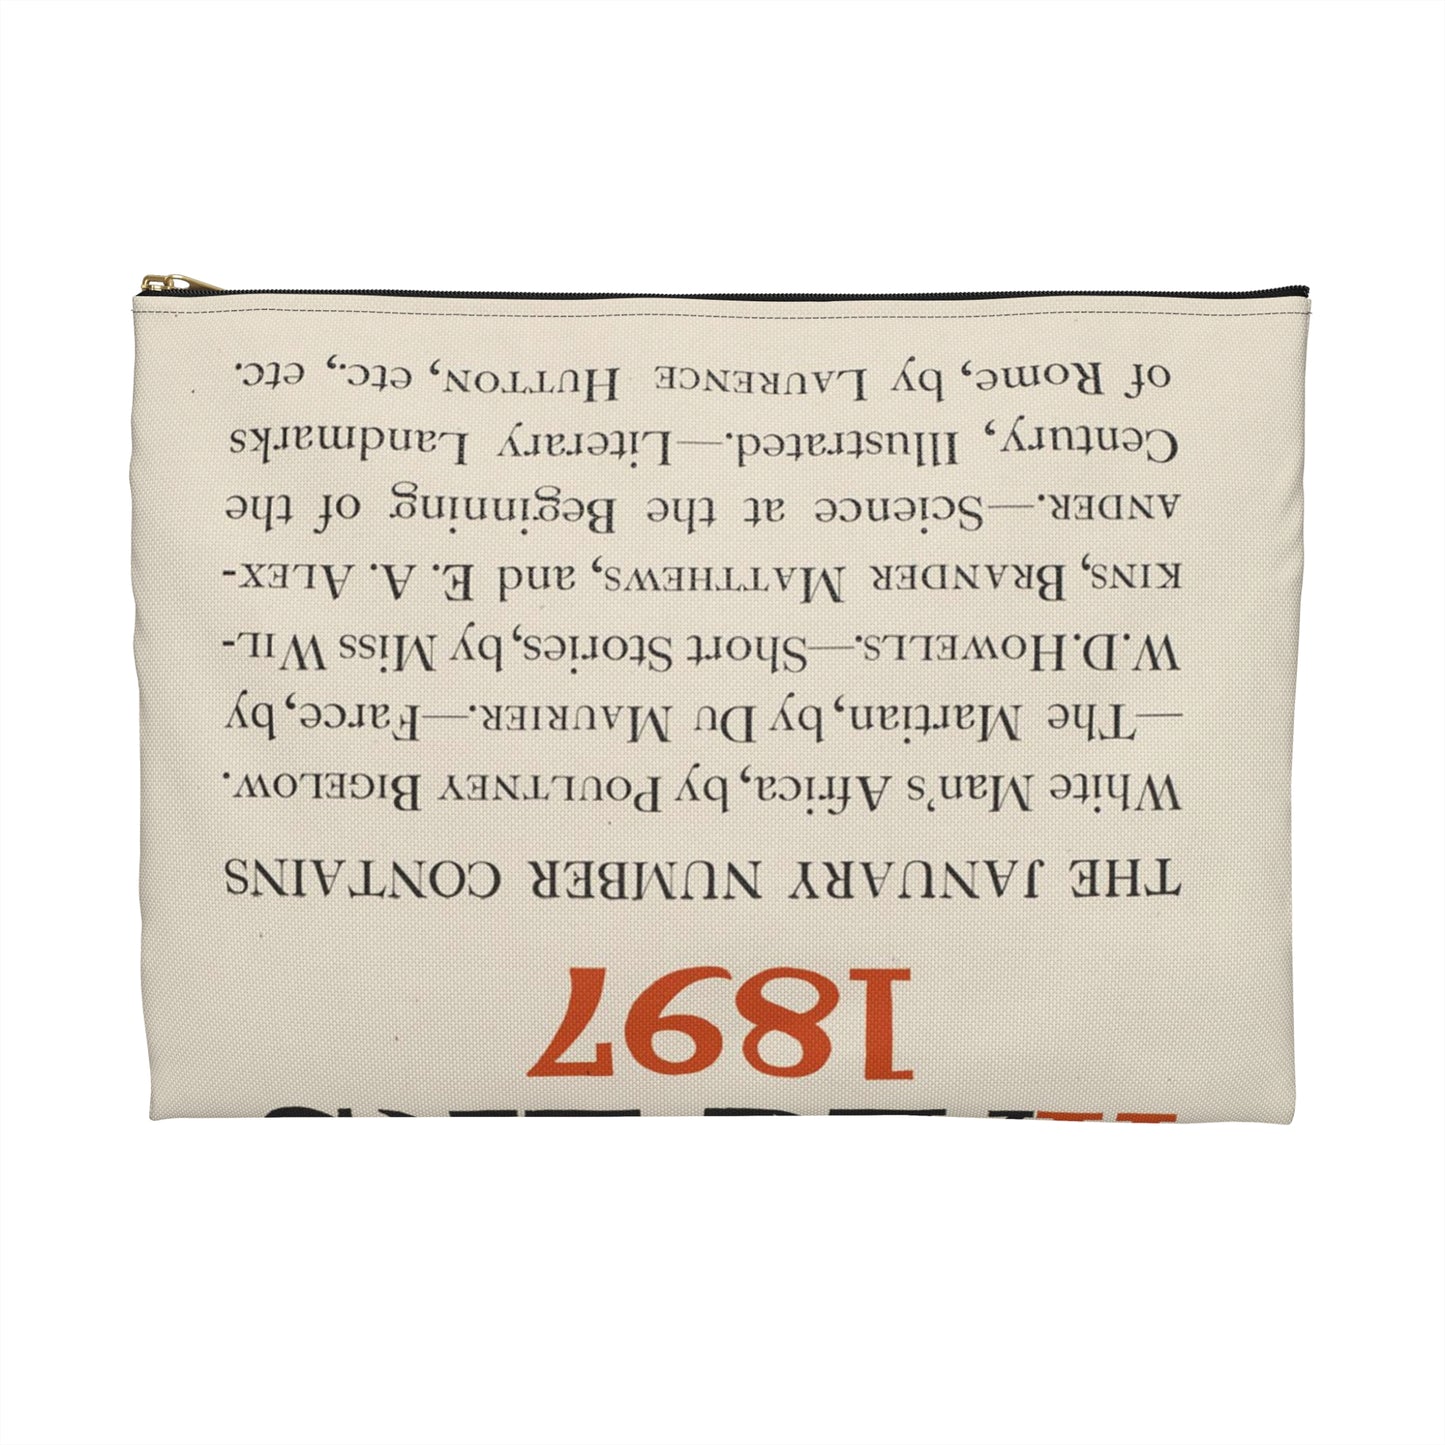 1897
THE JANUARY NUMBER CONTAINS
White Man's Africa, by POULTNEY BIGELOW.
—The Martian, by DU MAURIER.—Farce, by
W. D. HOWELLS.—Short Stories, by Miss WIL-
KINS, BRANDER MATTHEWS, and E. A. ALEX-
ANDER.—Science at the Beginning of the
Century, Illustrated.—Literary Landmarks
of Rome, by LAURENCE HUTTON, etc., etc.